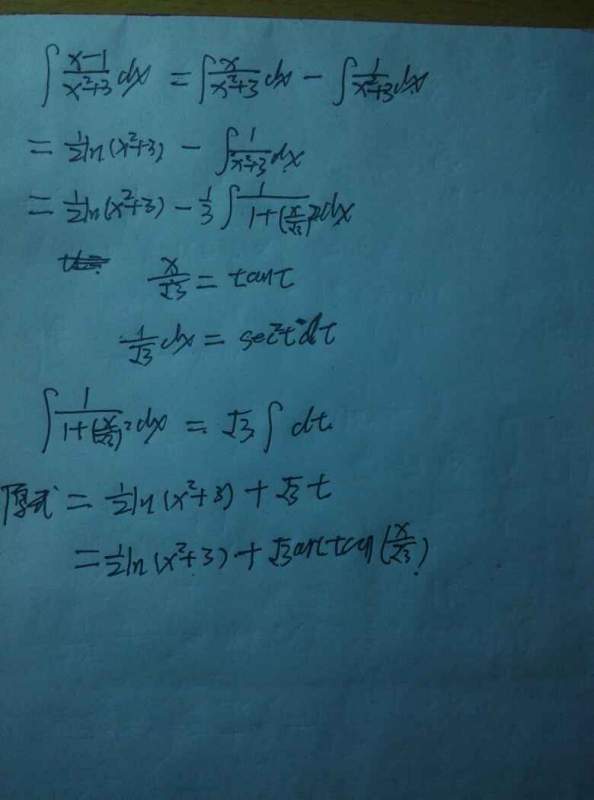 ∫ (x-1)/(x²+3) dx = ∫ x/(x²+3) dx - ∫ 1/(x²+3) dx
= ½ ln(x²+3) - ∫ 1/(x²+3) dx
= ½ ln(x²+3) - ⅓ ∫ 1/(1+(x/√3)²) dx
x/√3 = tan t
1/√3 dx = sec²t dt
∫ 1/(1+(x/√3)²) dx = √3 ∫ dt
原式 = ½ ln(x²+3) + √3 t
= ½ ln(x²+3) + √3 arctan(x/√3)